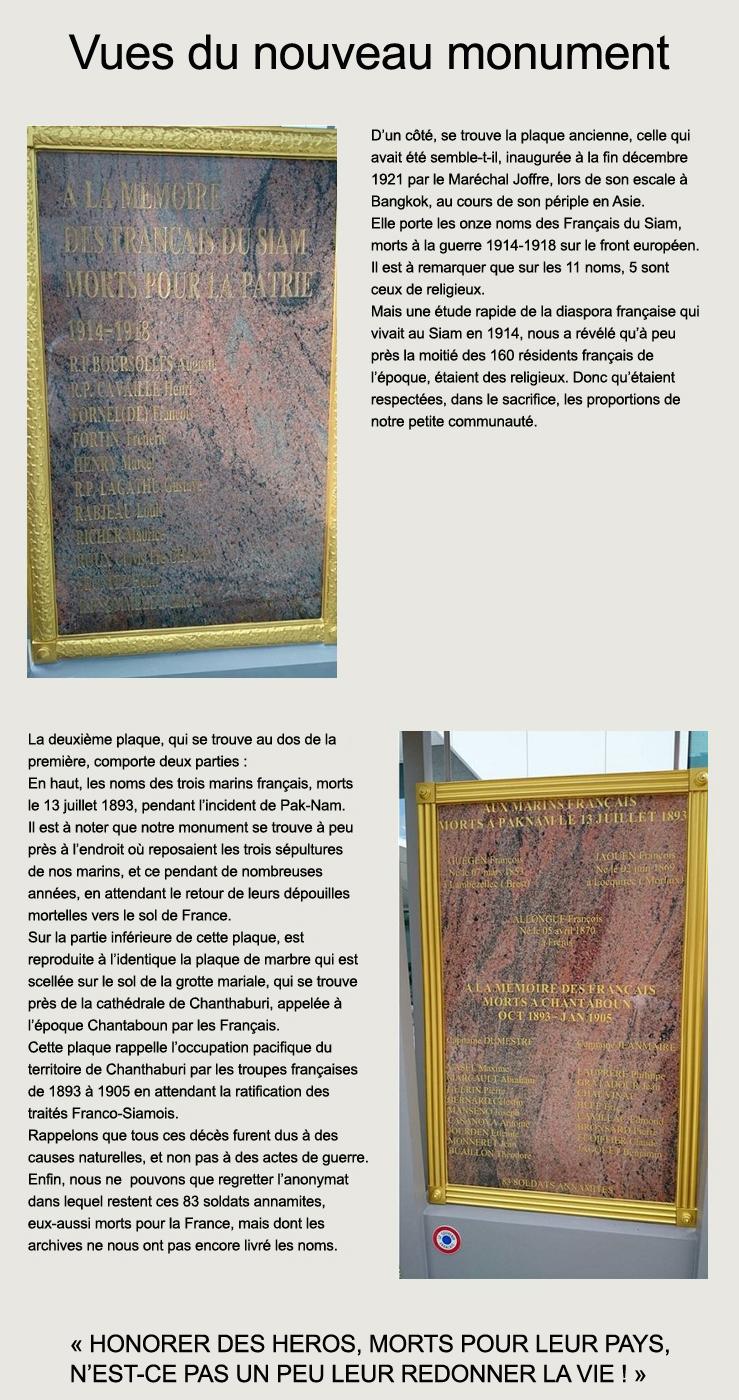 Vues du nouveau monument
A LA MEMOIRE
DES FRANCAIS DU SIAM
MORTS POUR LA PATRIE
1914-1918
R.P. BOURSOLLES Auguste
R.P. CAVAILLE Henri
FORNEL(DE) Francois
FORTIN Frederic
HENRY Marcel
R.P. LAGATHU Gustave
RABJEAU Louis
RICHER Maurice
D'un côté, se trouve la plaque ancienne, celle qui
avait été semble-t-il, inaugurée à la fin décembre
1921 par le Maréchal Joffre, lors de son escale à
Bangkok, au cours de son périple en Asie.
Elle porte les onze noms des Français du Siam,
morts à la guerre 1914-1918 sur le front européen.
Il est à remarquer que sur les 11 noms, 5 sont
ceux de religieux.
Mais une étude rapide de la diaspora française qui
vivait au Siam en 1914, nous a révélé qu'à peu
près la moitié des 160 résidents français de
l'époque, étaient des religieux. Donc qu'étaient
respectées, dans le sacrifice, les proportions de
notre petite communauté.
La deuxième plaque, qui se trouve au dos de la
première, comporte deux parties :
En haut, les noms des trois marins français, morts
le 13 juillet 1893, pendant l'incident de Pak-Nam.
Il est à noter que notre monument se trouve à peu
près à l'endroit où reposaient les trois sépultures
de nos marins, et ce pendant de nombreuses
années, en attendant le retour de leurs dépouilles
mortelles vers le sol de France.
Sur la partie inférieure de cette plaque, est
reproduite à l'identique la plaque de marbre qui est
scellée sur le sol de la grotte mariale, qui se trouve
près de la cathédrale de Chanthaburi, appelée à
l'époque Chantaboun par les Français.
Cette plaque rappelle l'occupation pacifique du
territoire de Chanthaburi par les troupes françaises
de 1893 à 1905 en attendant la ratification des
traités Franco-Siamois.
Rappelons que tous ces décès furent dus à des
causes naturelles, et non pas à des actes de guerre.
Enfin, nous ne  pouvons que regretter l'anonymat
dans lequel restent ces 83 soldats annamites,
eux-aussi morts pour la France, mais dont les
archives ne nous ont pas encore livré les noms.
AUX MARINS FRANÇAIS
MORTS A PAKNAM LE 13 JUILLET 1893
GUEGEN François
Né le 07 mars 1853
à Lambezellec (Brest)
JAOUEN François
Né le 02 juin 1869
à Locquirec (Morlaix)
ALLONGUE François
Né le 05 avril 1870
à Fréjus
A LA MEMOIRE DES FRANCAIS
MORTS A CHANTABOUN
OCT 1893 - JAN 1905
Capitaine DUMESTRE
Capitaine JEANMAIRE
Maxime
MARGAULT Abraham
GUERIN Pierre
BERNARD Célestin
MANSENO Joseph
CASANOVA Antoine
JOURDEN Etienne
MONNERET Jean
BUAILLON Théodore
LAUPRETE Philippe
GRATADOUR Jean
CHALVINAL
Edmond
BRONSARD Pierre
Claude
JACQUET Benjamin
83 SOLDATS ANNAMITES
« HONORER DES HEROS, MORTS POUR LEUR PAYS,
N'EST-CE PAS UN PEU LEUR REDONNER LA VIE ! »